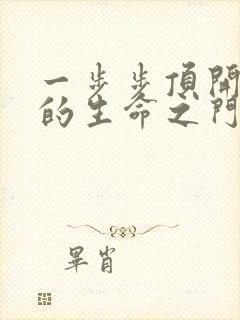 一步步頂開
的生命之門
畢肖